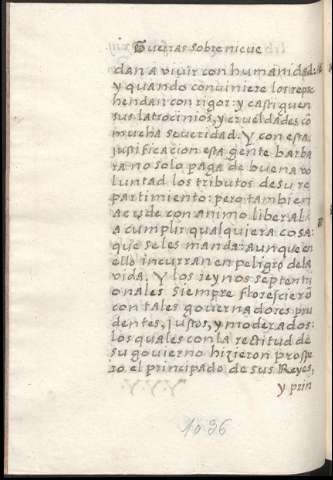 Guerras sobre nieue
dan a viuir con humanidad:
y quando conuiniere los repre
hendan con rigor: y castiguen
sus latrocinios, y crueldades cõ
mucha seueridad. Y con esta
justificacion esta gente barba
ra no solo paga de buena vo
luntad los tributos de su re
partimiento: pero tambien
acude con animo liberal a
a cumplir qualquiera cosa
que se les manda: aunque en
ello incurran en peligro de la
vida. Y los reynos septentri
onales siempre florescierõ
con tales gouernadores pru
dentes, justos, y moderados:
los quales con la rectitud de
su gouierno hizieron prospe
ro el principado de sus Reyes,
y prin
1036